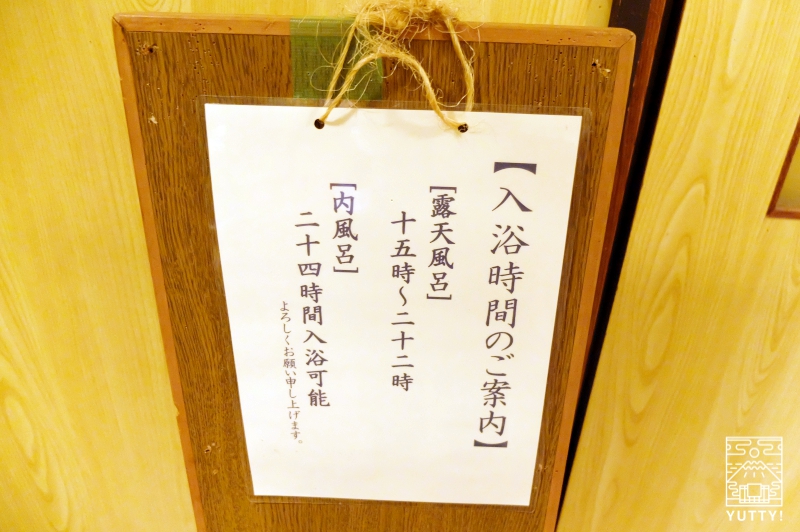 【入浴時間のご案内】
[露天風呂]
十五時～二十二時
[内風呂]
二十四時間入浴可能
よろしくお願い申し上げます。
YUTTY!